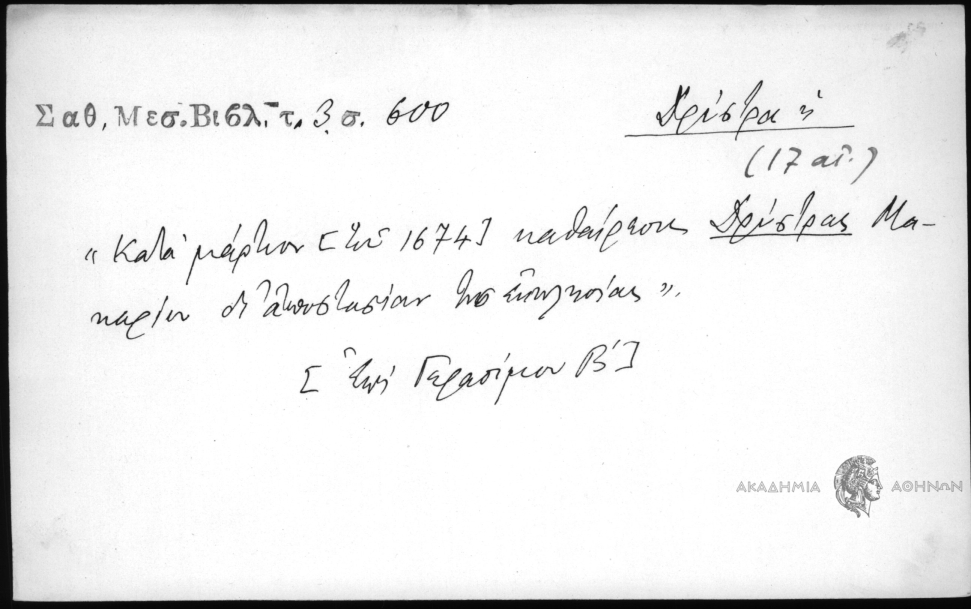 Σαθ. Μεσ. Βιβλ. τ. 3 σ. 600
Δρίστρα ἡ
(17 αἰ.)
"Κατὰ μάρτιον [τοῦ 1674] καθαίρεσις Δρύστρας Μα-
καρίου δι' ἀποστασίαν τῆς ἐκκλησίας".
[Ἐπὶ Γερασίμου Β']
ΑΚΑΔΗΜΙΑ ΑΘΗΝΩΝ